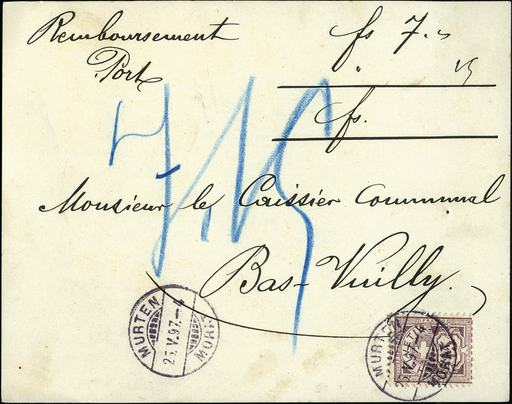 Remboursement fs 7.-
Port " 15
fs.
7.15
Monsieur le Caissier Communal
Bas-Vuilly.
MURTEN
23.V.97.-4
MORAT
MURTEN
HELVETIA